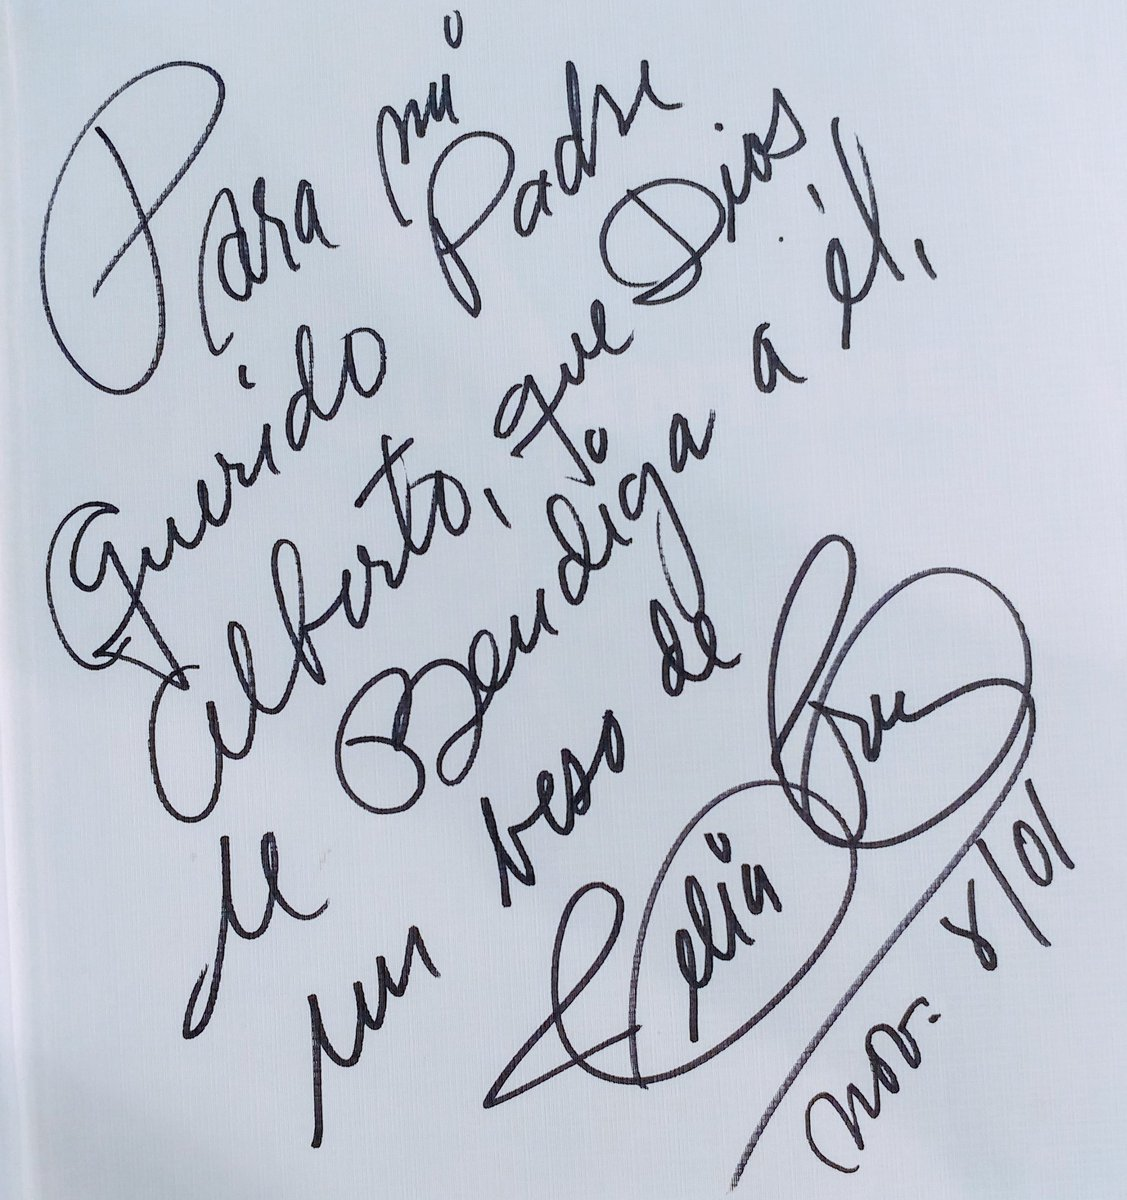 Para mi
Querido Padre
Alberto, que Dios
le Bendiga a él,
un beso de
Celia Cruz
nov. 8/01